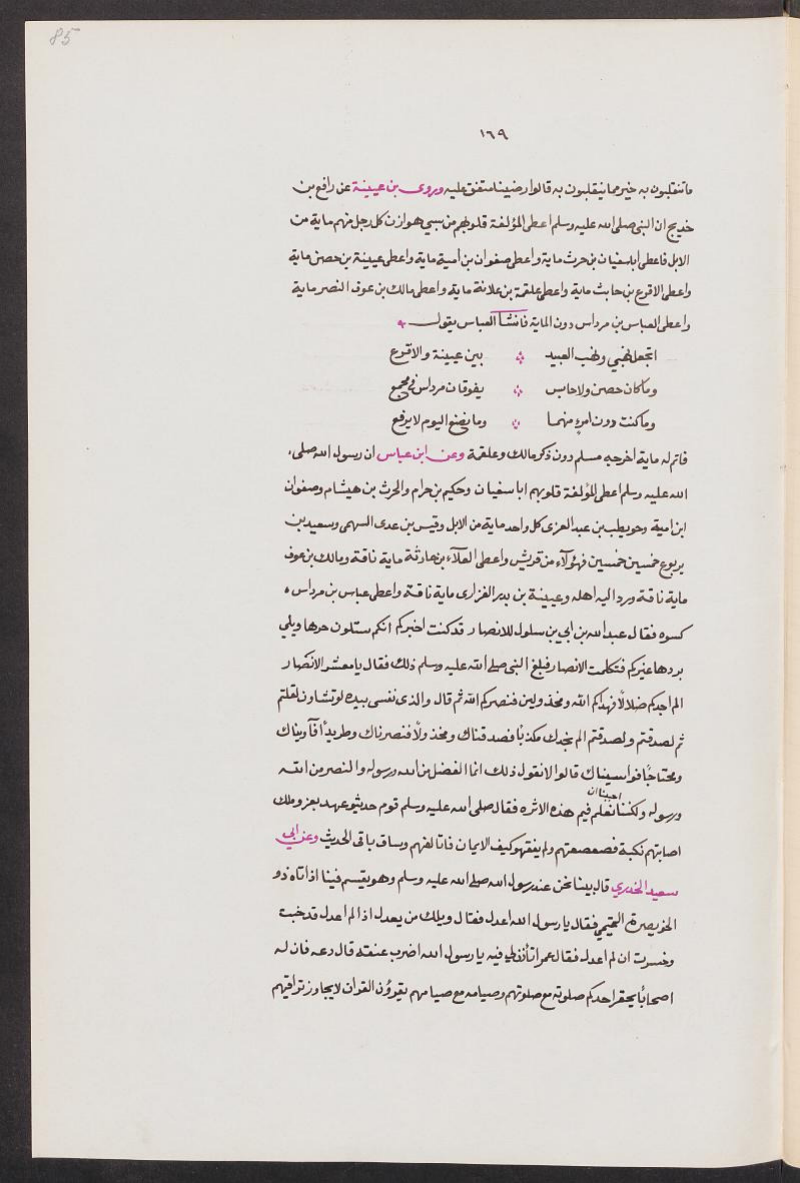 85
١٦٩
ماتنقلبون به خير مما ينقلبون به قالوا رضينا متفق عليه وروى بن عيينة عن رافع بن
خديج ان النبي صلى الله عليه وسلم اعطى المؤلفة قلوبهم من سبي هوازن كل رجل منهم ماية من
الابل فاعطى اباسفيان بن حرث ماية واعطى صفوان بن أمية ماية واعطى عيينة بن حصن ماية
واعطى الاقوع بن حابث ماية واعطى علقمة بن علانة ماية واعطى مالك بن عوف النصر ماية
واعطى العباس بن مرداس دون الماية فانشأ العباس يقول
اتجعل نهبي ونهب العبيد بين عيينة والاقوع
وماكان حصن ولاحابس يفوقان مرداس في مجمع
وماكنت دون امرء منهما وما نضع اليوم لايرفع
فاتم له ماية اخرجه مسلم دون ذكر مالك وعلقمة وعن ابن عباس ان رسول الله صلى
الله عليه وسلم اعطى المؤلفة قلوبهم اباسفيان وحكيم بن حرام والحرث بن هيشام وصفوان
ابن امية وحويطب بن عبد العزى كل واحد ماية من الابل وقيس بن عدى السهمى وسعيد بن
يربوع خمسين خمسين فهؤلآء من قريش واعطى العلآء بن حارثة ماية ناقة ومالك بن عوف
ماية ناقة ورد اليه اهله وعيينة بن بدر الفزارى ماية ناقة واعطى عباس بن مرداس
كسوه فقال عبد الله بن ابي بن سلول للانصار قد كنت اخبركم انكم ستلون حرها ويلي
بردها غيركم فتكلمت الانصار فبلغ النبى صلى الله عليه وسلم ذلك فقال يا معشر الانصار
الم اجدكم ضلالًا فهداكم الله ومخذولين فنصركم الله ثم قال والذى نفسى بيده لوتشاون لقلتم
ثم لصدقتم ولصدقتم الم نجدك مكذبًا فصدقناك ومخذولًا فنصرناك وطريدًا فآويناك
ومحتاجًا فواسيناك قالوا لانقول ذلك انما الفضل من الله ورسوله والنصر من الله
ورسوله ولكننا احببنا ان نعلم فيم هذه الاثره فقال صلى الله عليه وسلم قوم حديثو عهد بعز وملك
اصابتهم نكبة فضعضعتهم ولم يفقهو كيف الايمان فاتالفهم وساق باقى الحديث وعن ابى
سعيد الخدري قال بينا نحن عند رسول الله صلى الله عليه وسلم وهو يقسم فينا اذا تاه ذو
الخويصرة التميمي فقال يا رسول الله اعدل فقال ويلك من يعدل اذا لم اعدل قد خبت
وخسرت ان لم اعدل فقال عمر اتأذن لي فيه يا رسول الله اضرب عنقه قال دعه فان له
اصحابًا يحقر احدكم صلوته مع صلوتهم وصيامه مع صيامهم يقرؤن القران لايجاوز تراقيهم